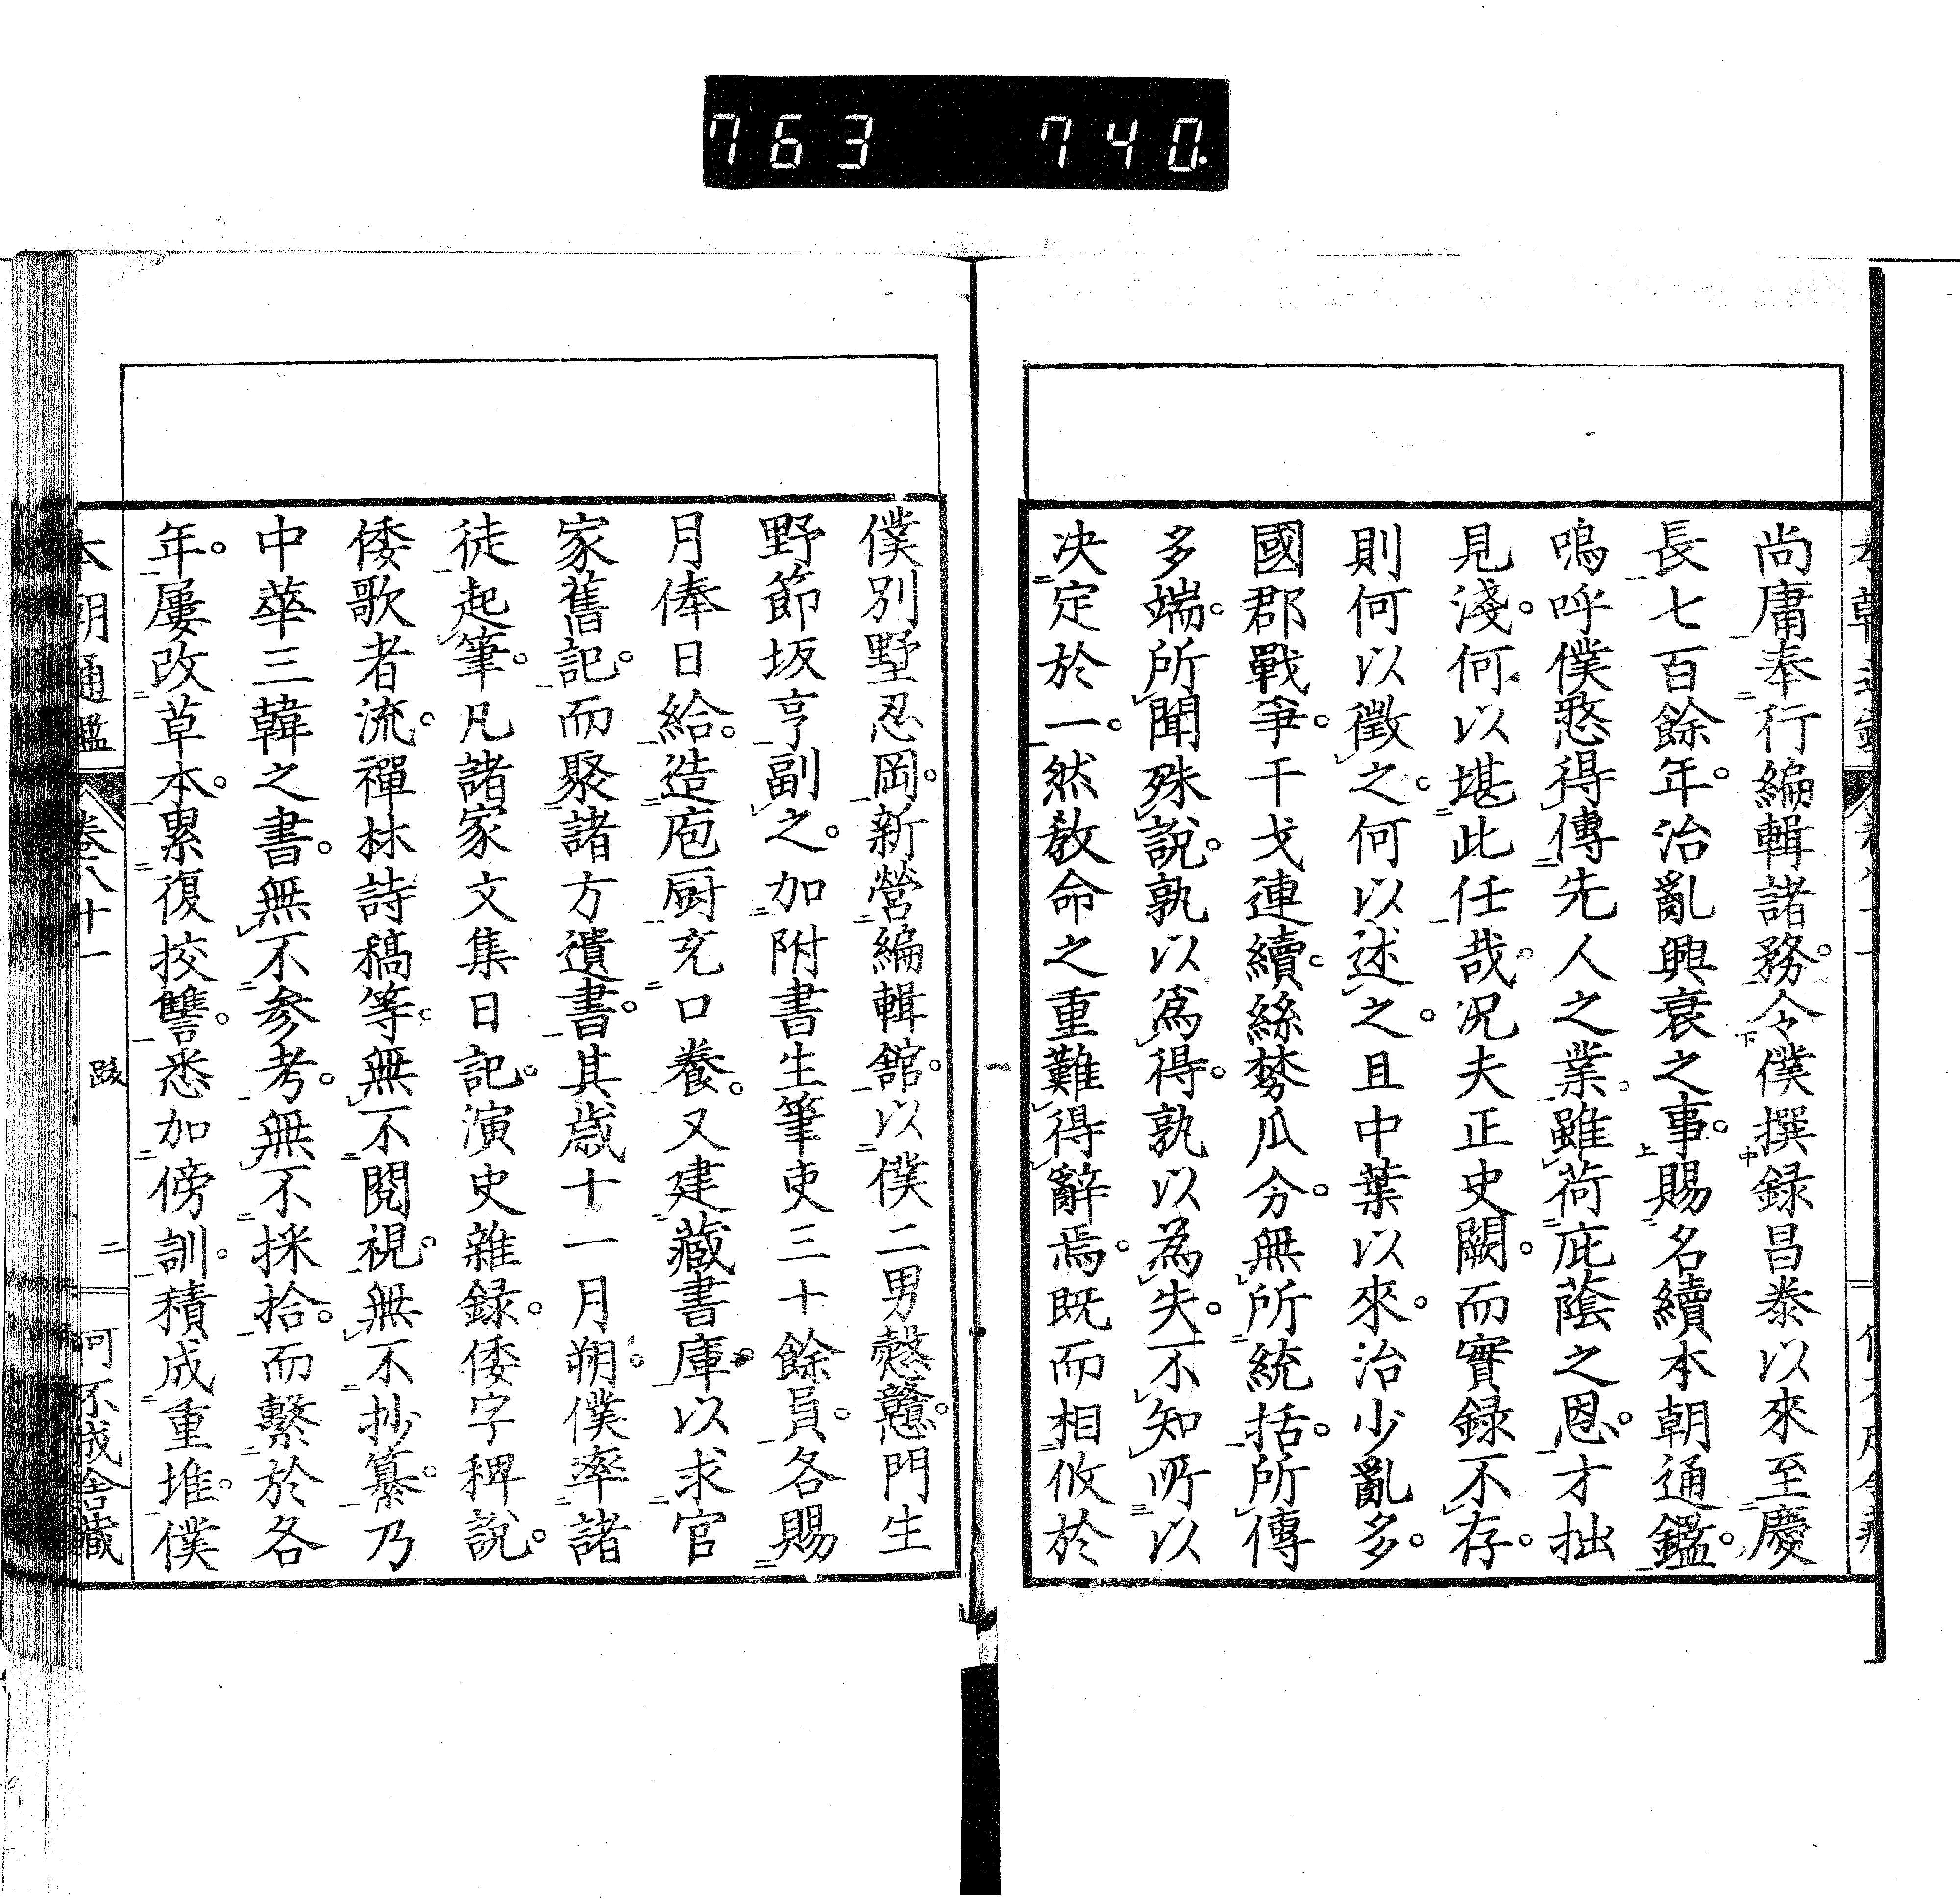 763 740.
尚庸奉行編輯諸務。令僕撰録昌泰以來至慶
長七百餘年。治亂興衰之事。賜名續本朝通鑑。
嗚呼僕憗得傳先人之業。雖荷庇蔭之恩。才拙
見淺。何以堪此任哉。況夫正史闕。而實録不存。
則何以徵之。何以述之。且中葉以來。治少亂多。
國郡戰爭。干戈連續。絲棼瓜分。無所統括。所傳
多端。所聞殊說。孰以爲得。孰以為失。不知所以
决定於一。然敎命之重難得辭焉。既而相攸於
僕別墅忍岡。新營編輯舘。以僕二男愨戇。門生
野節坂亨副之。加附書生筆吏三十餘員。各賜
月俸日給。造庖厨充口養。又建藏書庫。以求官
家舊記。而聚諸方遺書。其歲十一月朔。僕率諸
徒起筆。凡諸家文集日記。演史雜録。倭字稗說。
倭歌者流。禪林詩稿等。無不閱視。無不抄纂。乃
中華三韓之書。無不參考。無不採拾。而繫於各
年。屢改草本。累復挍讐。悉加傍訓。積成重堆。僕
本朝通鑑 卷八十一 跋 二 何不成舎藏